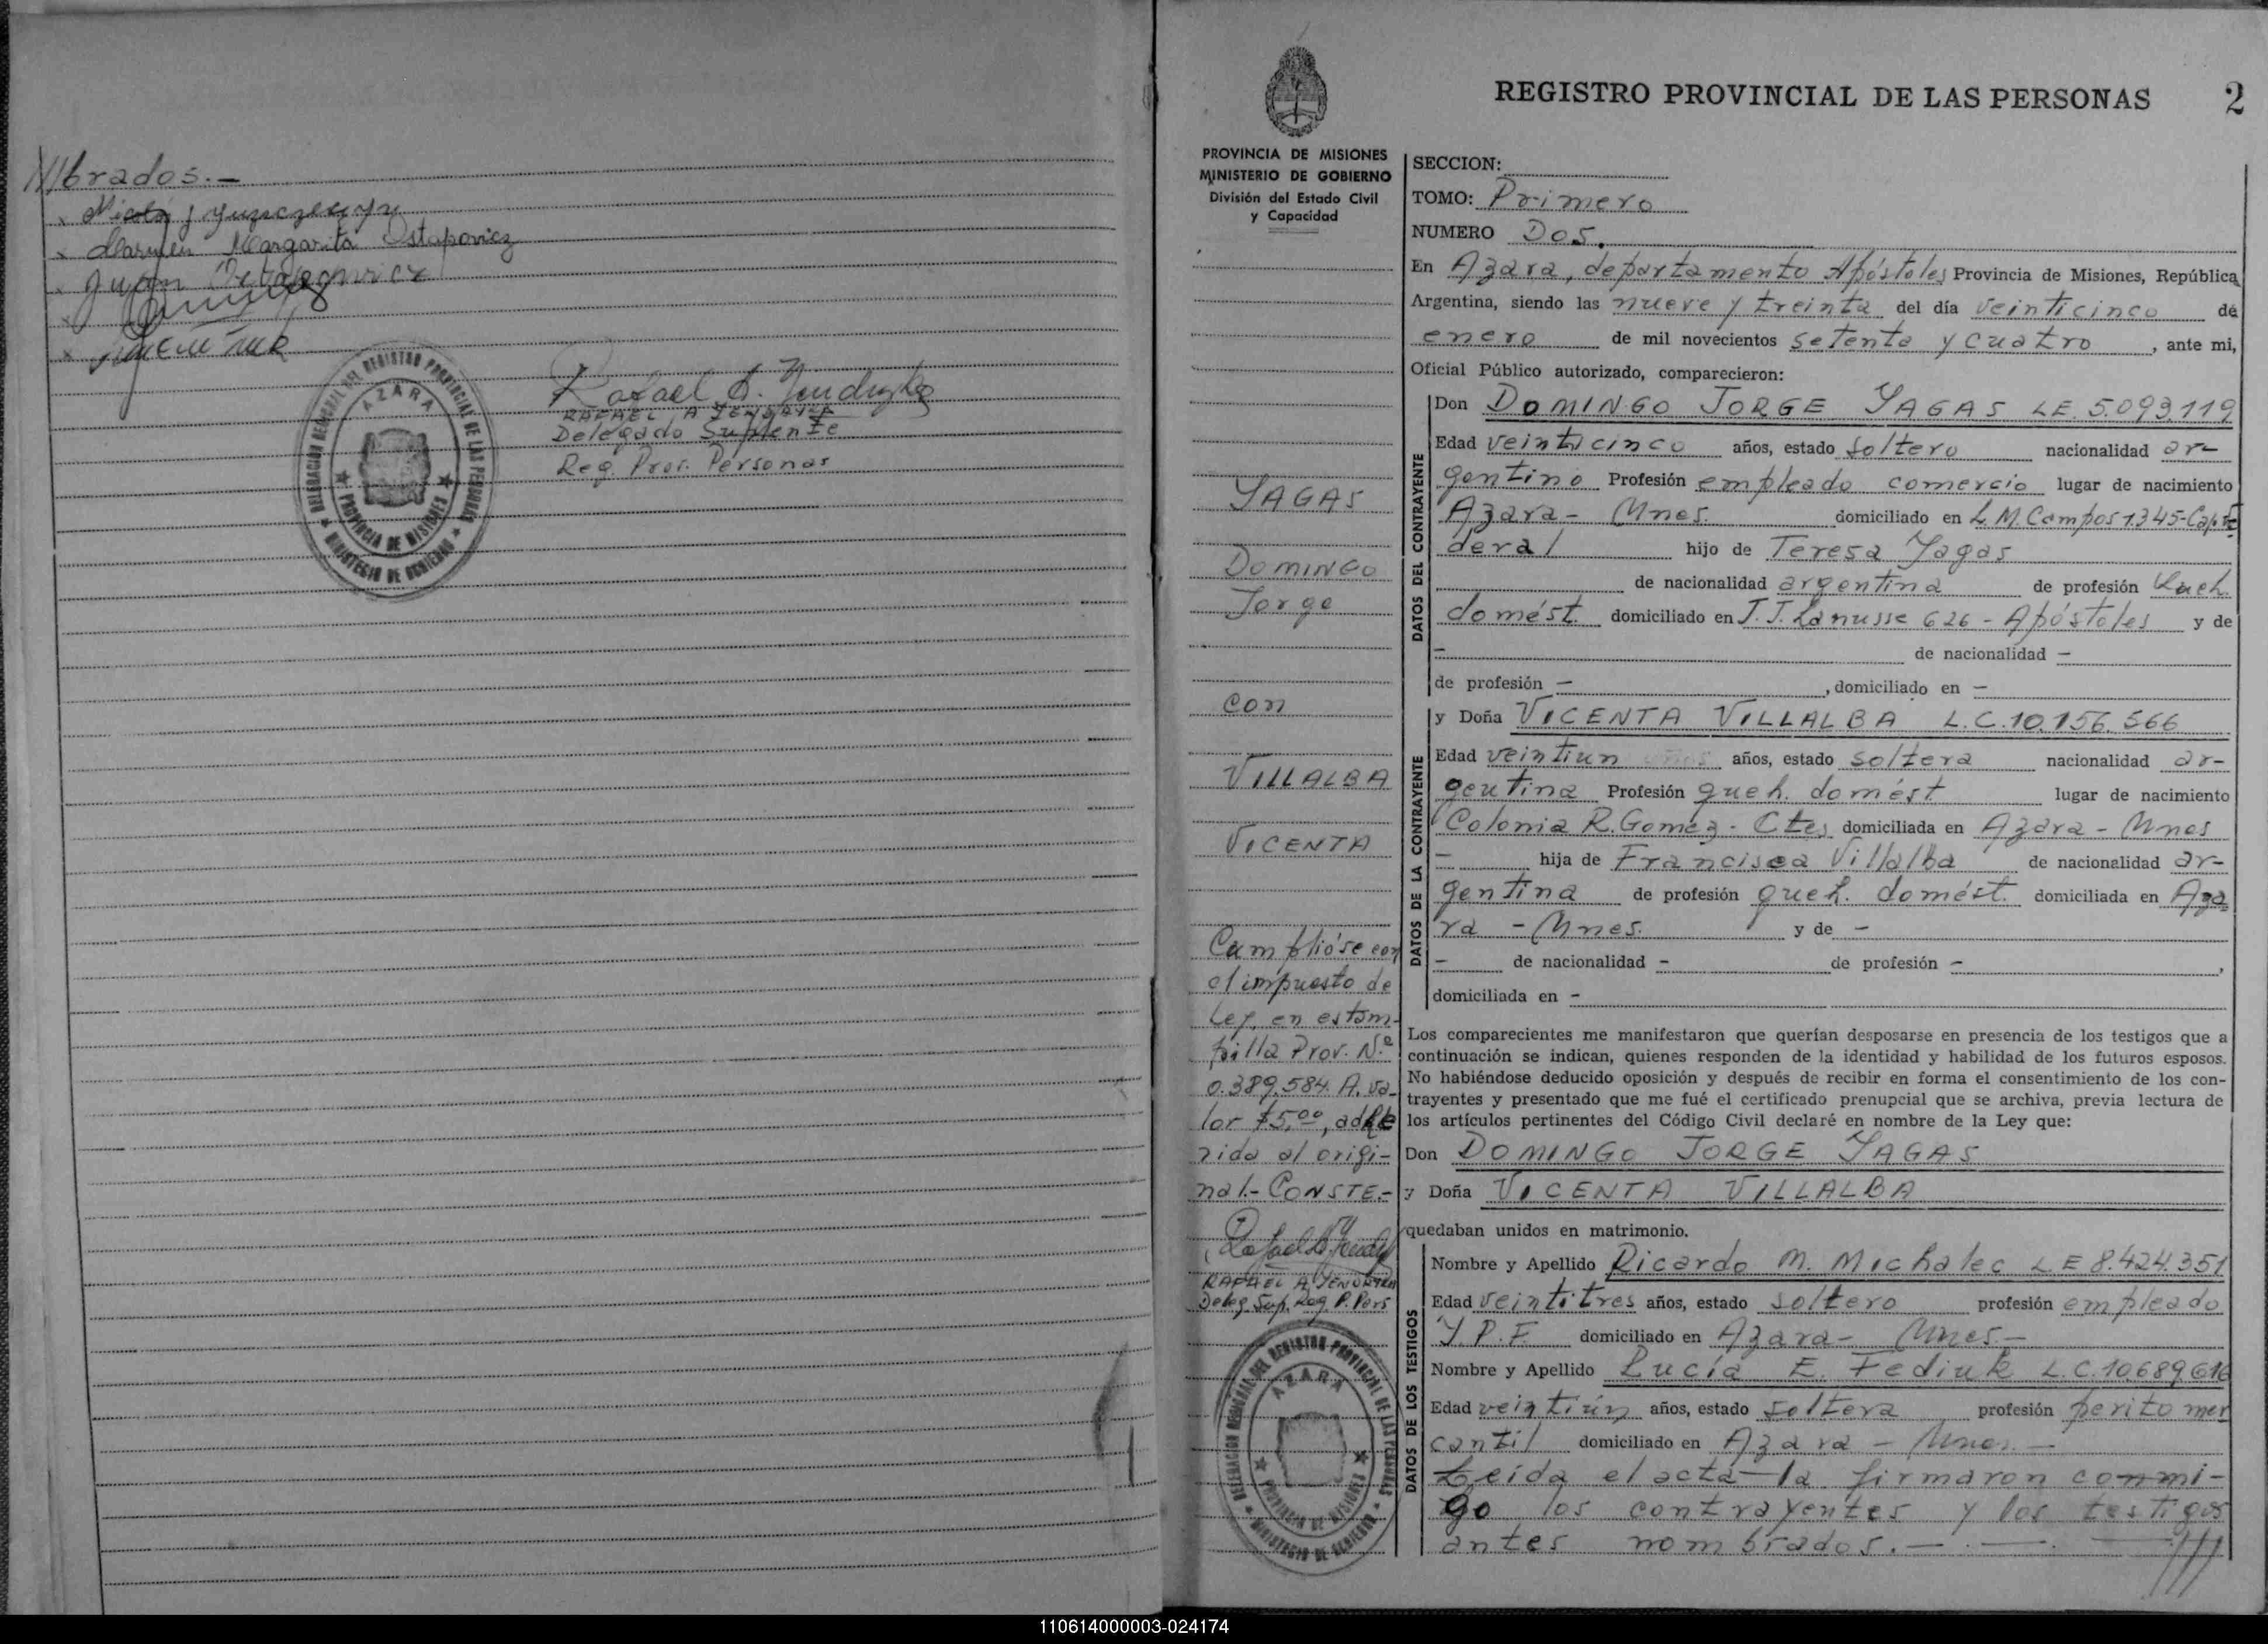 ///brados.-
Carmen Margarita Ostapovicz
Juan Ostapovicz
DELEGACION REGIONAL DEL REGISTRO PROVINCIAL DE LAS PERSONAS
AZARA
PROVINCIA DE MISIONES
MINISTERIO DE GOBIERNO
Rafael A.
RAFAEL A
Delegado Suplente
Reg. Prov. Personas
REGISTRO PROVINCIAL DE LAS PERSONAS 2
PROVINCIA DE MISIONES
MINISTERIO DE GOBIERNO
División del Estado Civil
y Capacidad
YAGAS
Domingo
Jorge
con
VILLALBA
VICENTA
Cumplióse con
el impuesto de
Ley, en estam-
pilla Prov. N.º
0.389.584. A. va-
lor $5,00, adhe
rida al origi-
nal.- CONSTE.-
RAFAEL A
Deleg. Sup. Reg. P. Pers
DELEGACION REGIONAL DEL REGISTRO PROVINCIAL DE LAS PERSONAS
AZARA
PROVINCIA DE MISIONES
MINISTERIO DE GOBIERNO
SECCION:
TOMO: Primero
NUMERO Dos.
En Azara, departamento Apóstoles Provincia de Misiones, República
Argentina, siendo las nueve y treinta del día veinticinco de
enero de mil novecientos setenta y cuatro, ante mi,
Oficial Público autorizado, comparecieron:
DATOS DEL CONTRAYENTE
Don DOMINGO JORGE YAGAS L.E. 5.093.119
Edad veinticinco años, estado soltero nacionalidad ar-
gentino Profesión empleado comercio lugar de nacimiento
Azara - Mnes. domiciliado en L.M. Campos 1345-Cap. Fe
deral hijo de Teresa Yagas
de nacionalidad argentina de profesión Queh.
domést. domiciliado en J.J. Lanusse 626 - Apóstoles y de
- de nacionalidad -
de profesión - , domiciliado en -
DATOS DE LA CONTRAYENTE
y Doña VICENTA VILLALBA L.C. 10.156.566
Edad veintiun años, estado soltera nacionalidad ar-
gentina Profesión queh. domést lugar de nacimiento
Colonia R. Gomez - Ctes, domiciliada en Azara - Mnes
- hija de Francisca Villalba de nacionalidad ar-
gentina de profesión queh. domést. domiciliada en Aza
ra - Mnes. y de -
- de nacionalidad - de profesión - ,
domiciliada en -
Los comparecientes me manifestaron que querían desposarse en presencia de los testigos que a
continuación se indican, quienes responden de la identidad y habilidad de los futuros esposos.
No habiéndose deducido oposición y después de recibir en forma el consentimiento de los con-
trayentes y presentado que me fué el certificado prenupcial que se archiva, previa lectura de
los artículos pertinentes del Código Civil declaré en nombre de la Ley que:
Don DOMINGO JORGE YAGAS
y Doña VICENTA VILLALBA
quedaban unidos en matrimonio.
DATOS DE LOS TESTIGOS
Nombre y Apellido Ricardo M. Michalec L.E 8.424.351
Edad veintitres años, estado soltero profesión empleado
Y.P.F. domiciliado en Azara - Mnes.-
Nombre y Apellido Lucía E. Fediuk L.C. 10.689.616
Edad veintiún años, estado soltera profesión perito mer
cantil domiciliado en Azara - Mnes.-
Leída el acta la firmaron conmi-
go los contrayentes y los testigos
antes nombrados.- ///
110614000003-024174